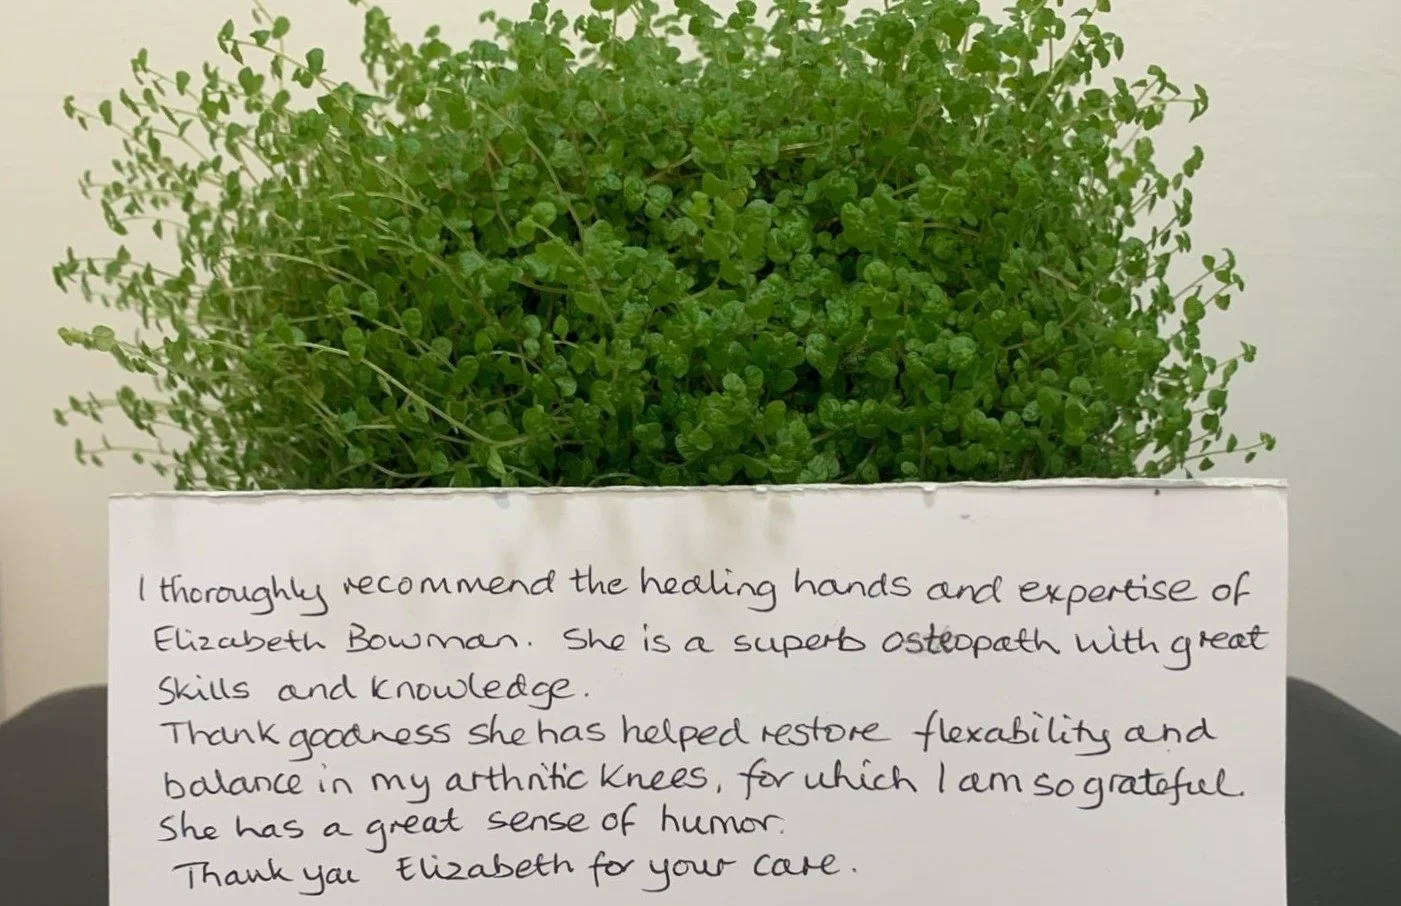 I thoroughly recommend the healing hands and expertise of
Elizabeth Bowman. She is a superb osteopath with great
Skills and knowledge.
Thank goodness she has helped restore flexability and
balance in my arthritic knees, for which I am so grateful.
She has a great sense of humor.
Thank you Elizabeth for your care.